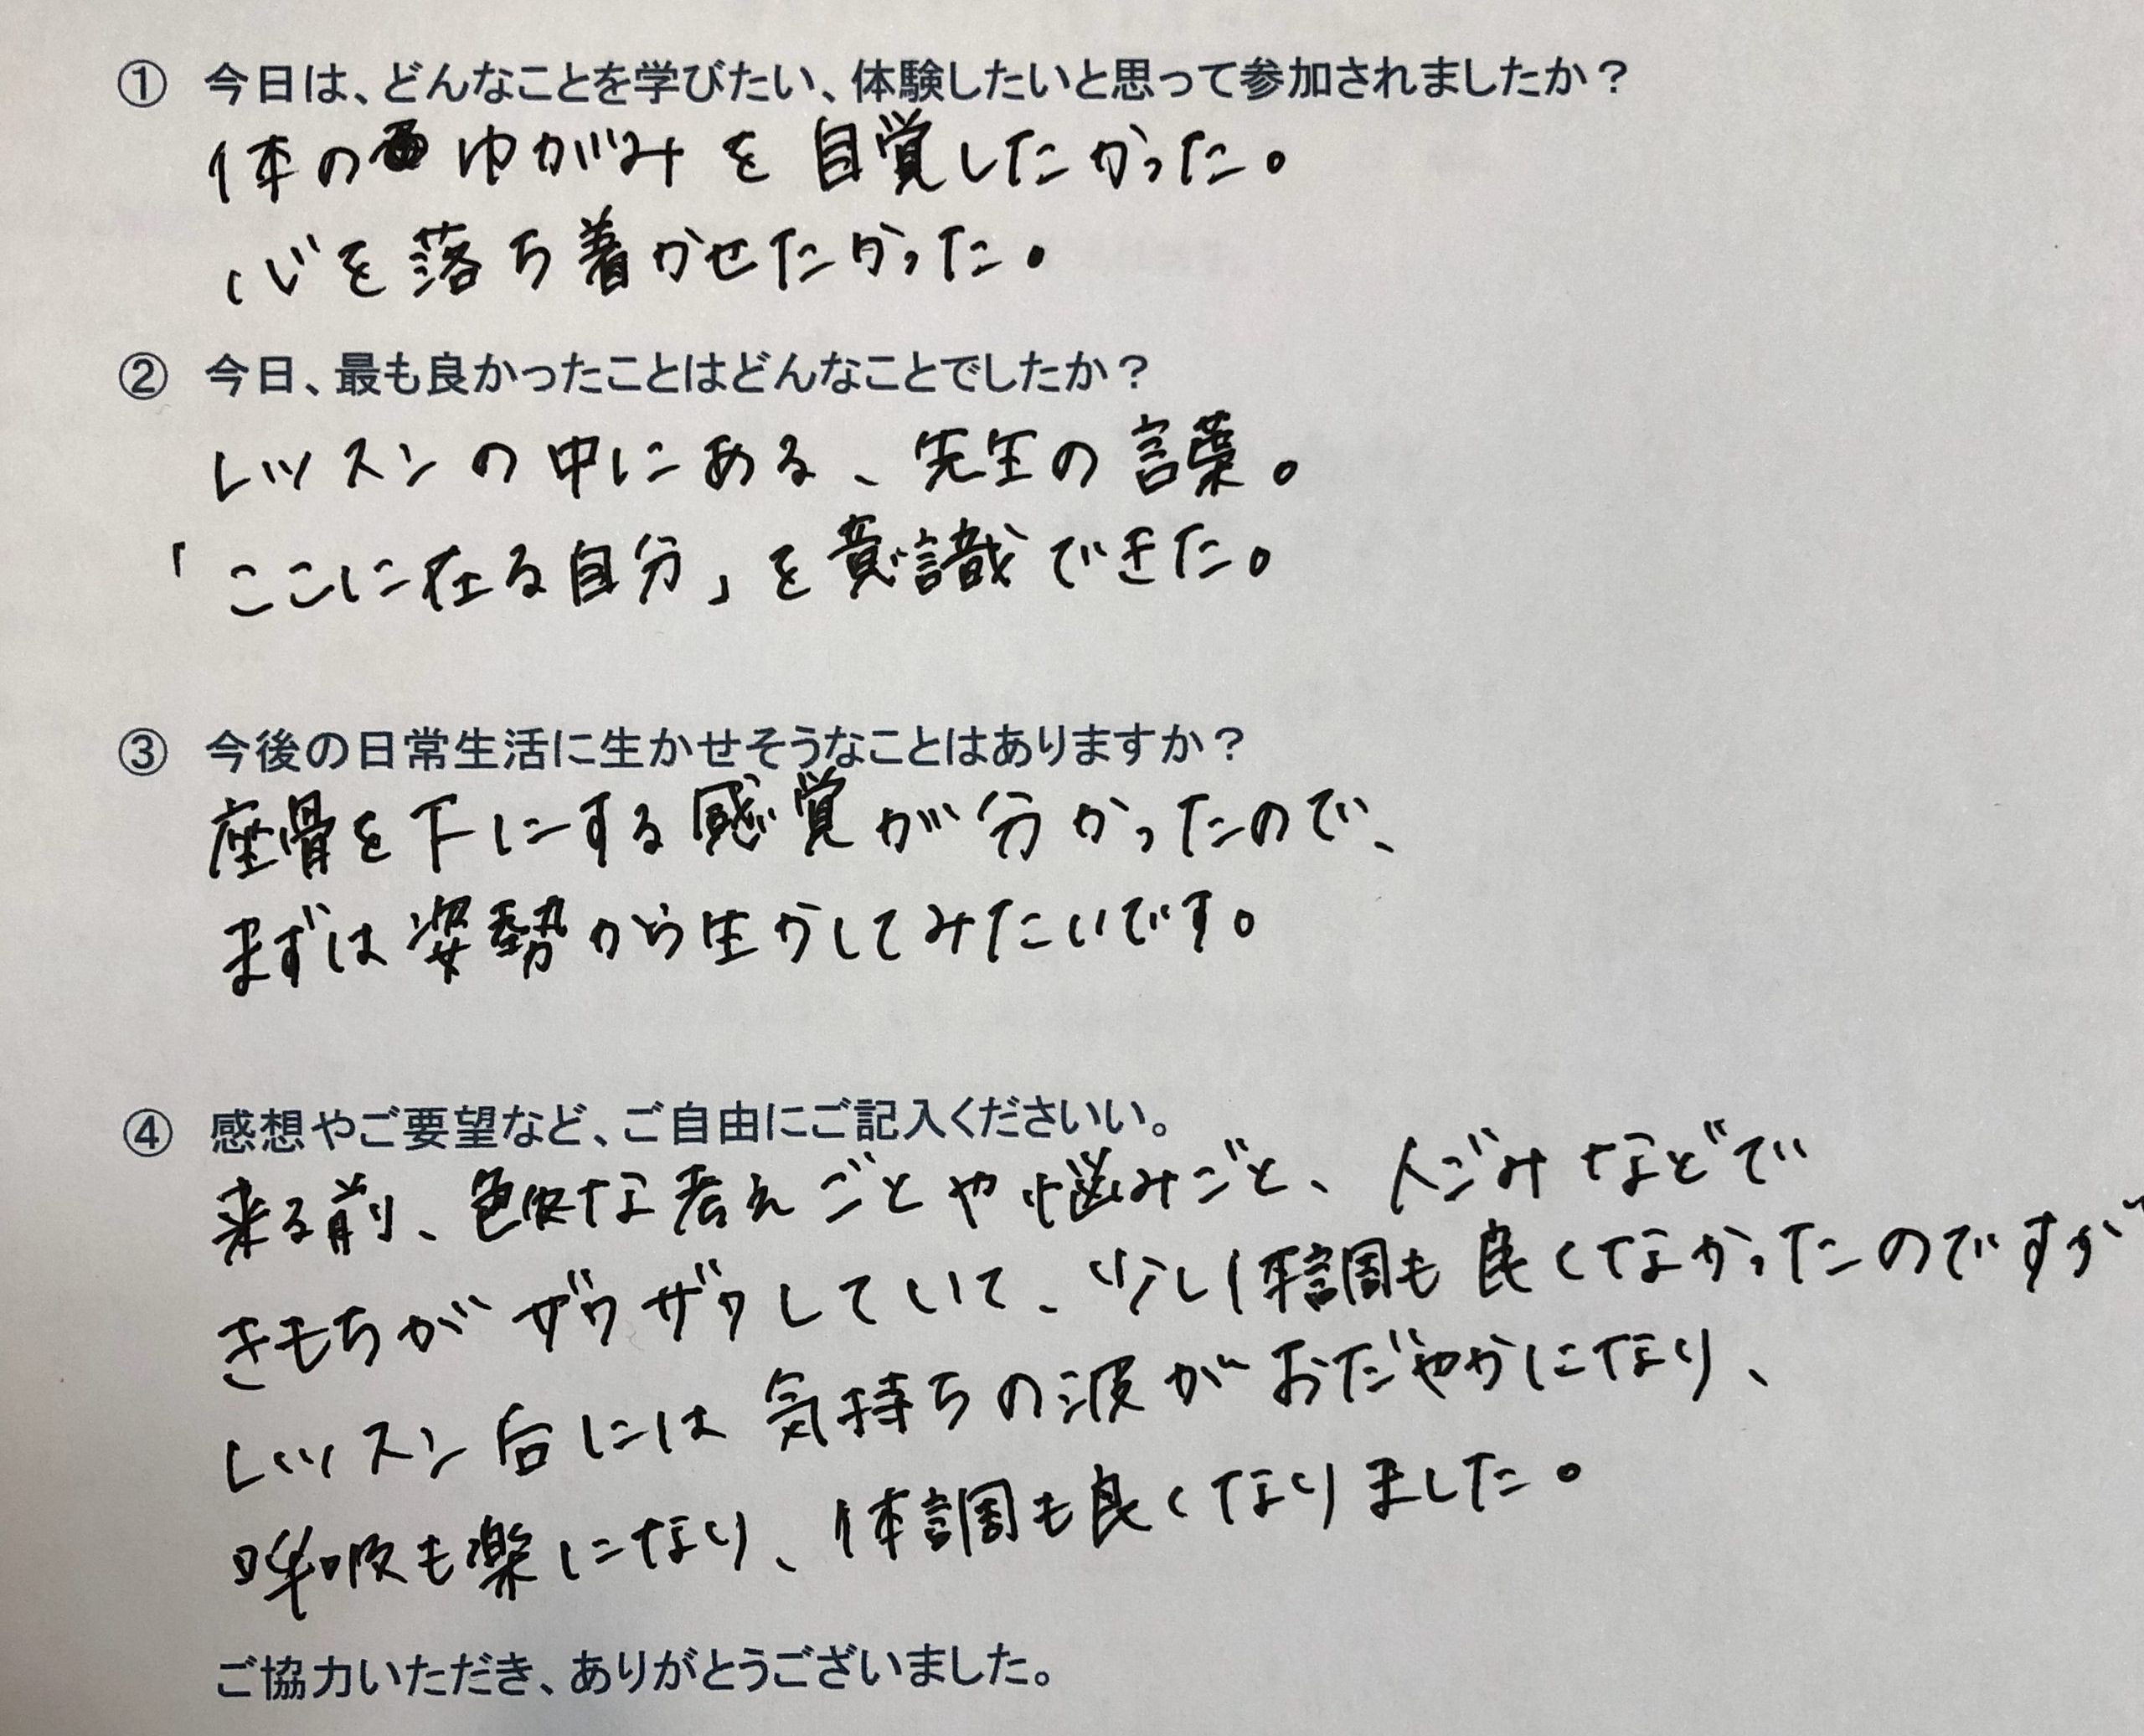 ① 今日は、どんなことを学びたい、体験したいと思って参加されましたか？
体のゆがみを自覚したかった。
心を落ち着かせたかった。
② 今日、最も良かったことはどんなことでしたか？
レッスンの中にある、先生の言葉。
「ここに在る自分」を意識できた。
③ 今後の日常生活に生かせそうなことはありますか？
座骨を下にする感覚が分かったので、
まずは姿勢から生かしてみたいです。
④ 感想やご要望など、ご自由にご記入くださいい。
来る前、色々な考えごとや悩みごと、人ごみなどで
きもちがザワザワしていて、少し体調も良くなかったのですが
レッスン后には気持ちの波がおだやかになり、
呼吸も楽になり、体調も良くなりました。
ご協力いただき、ありがとうございました。